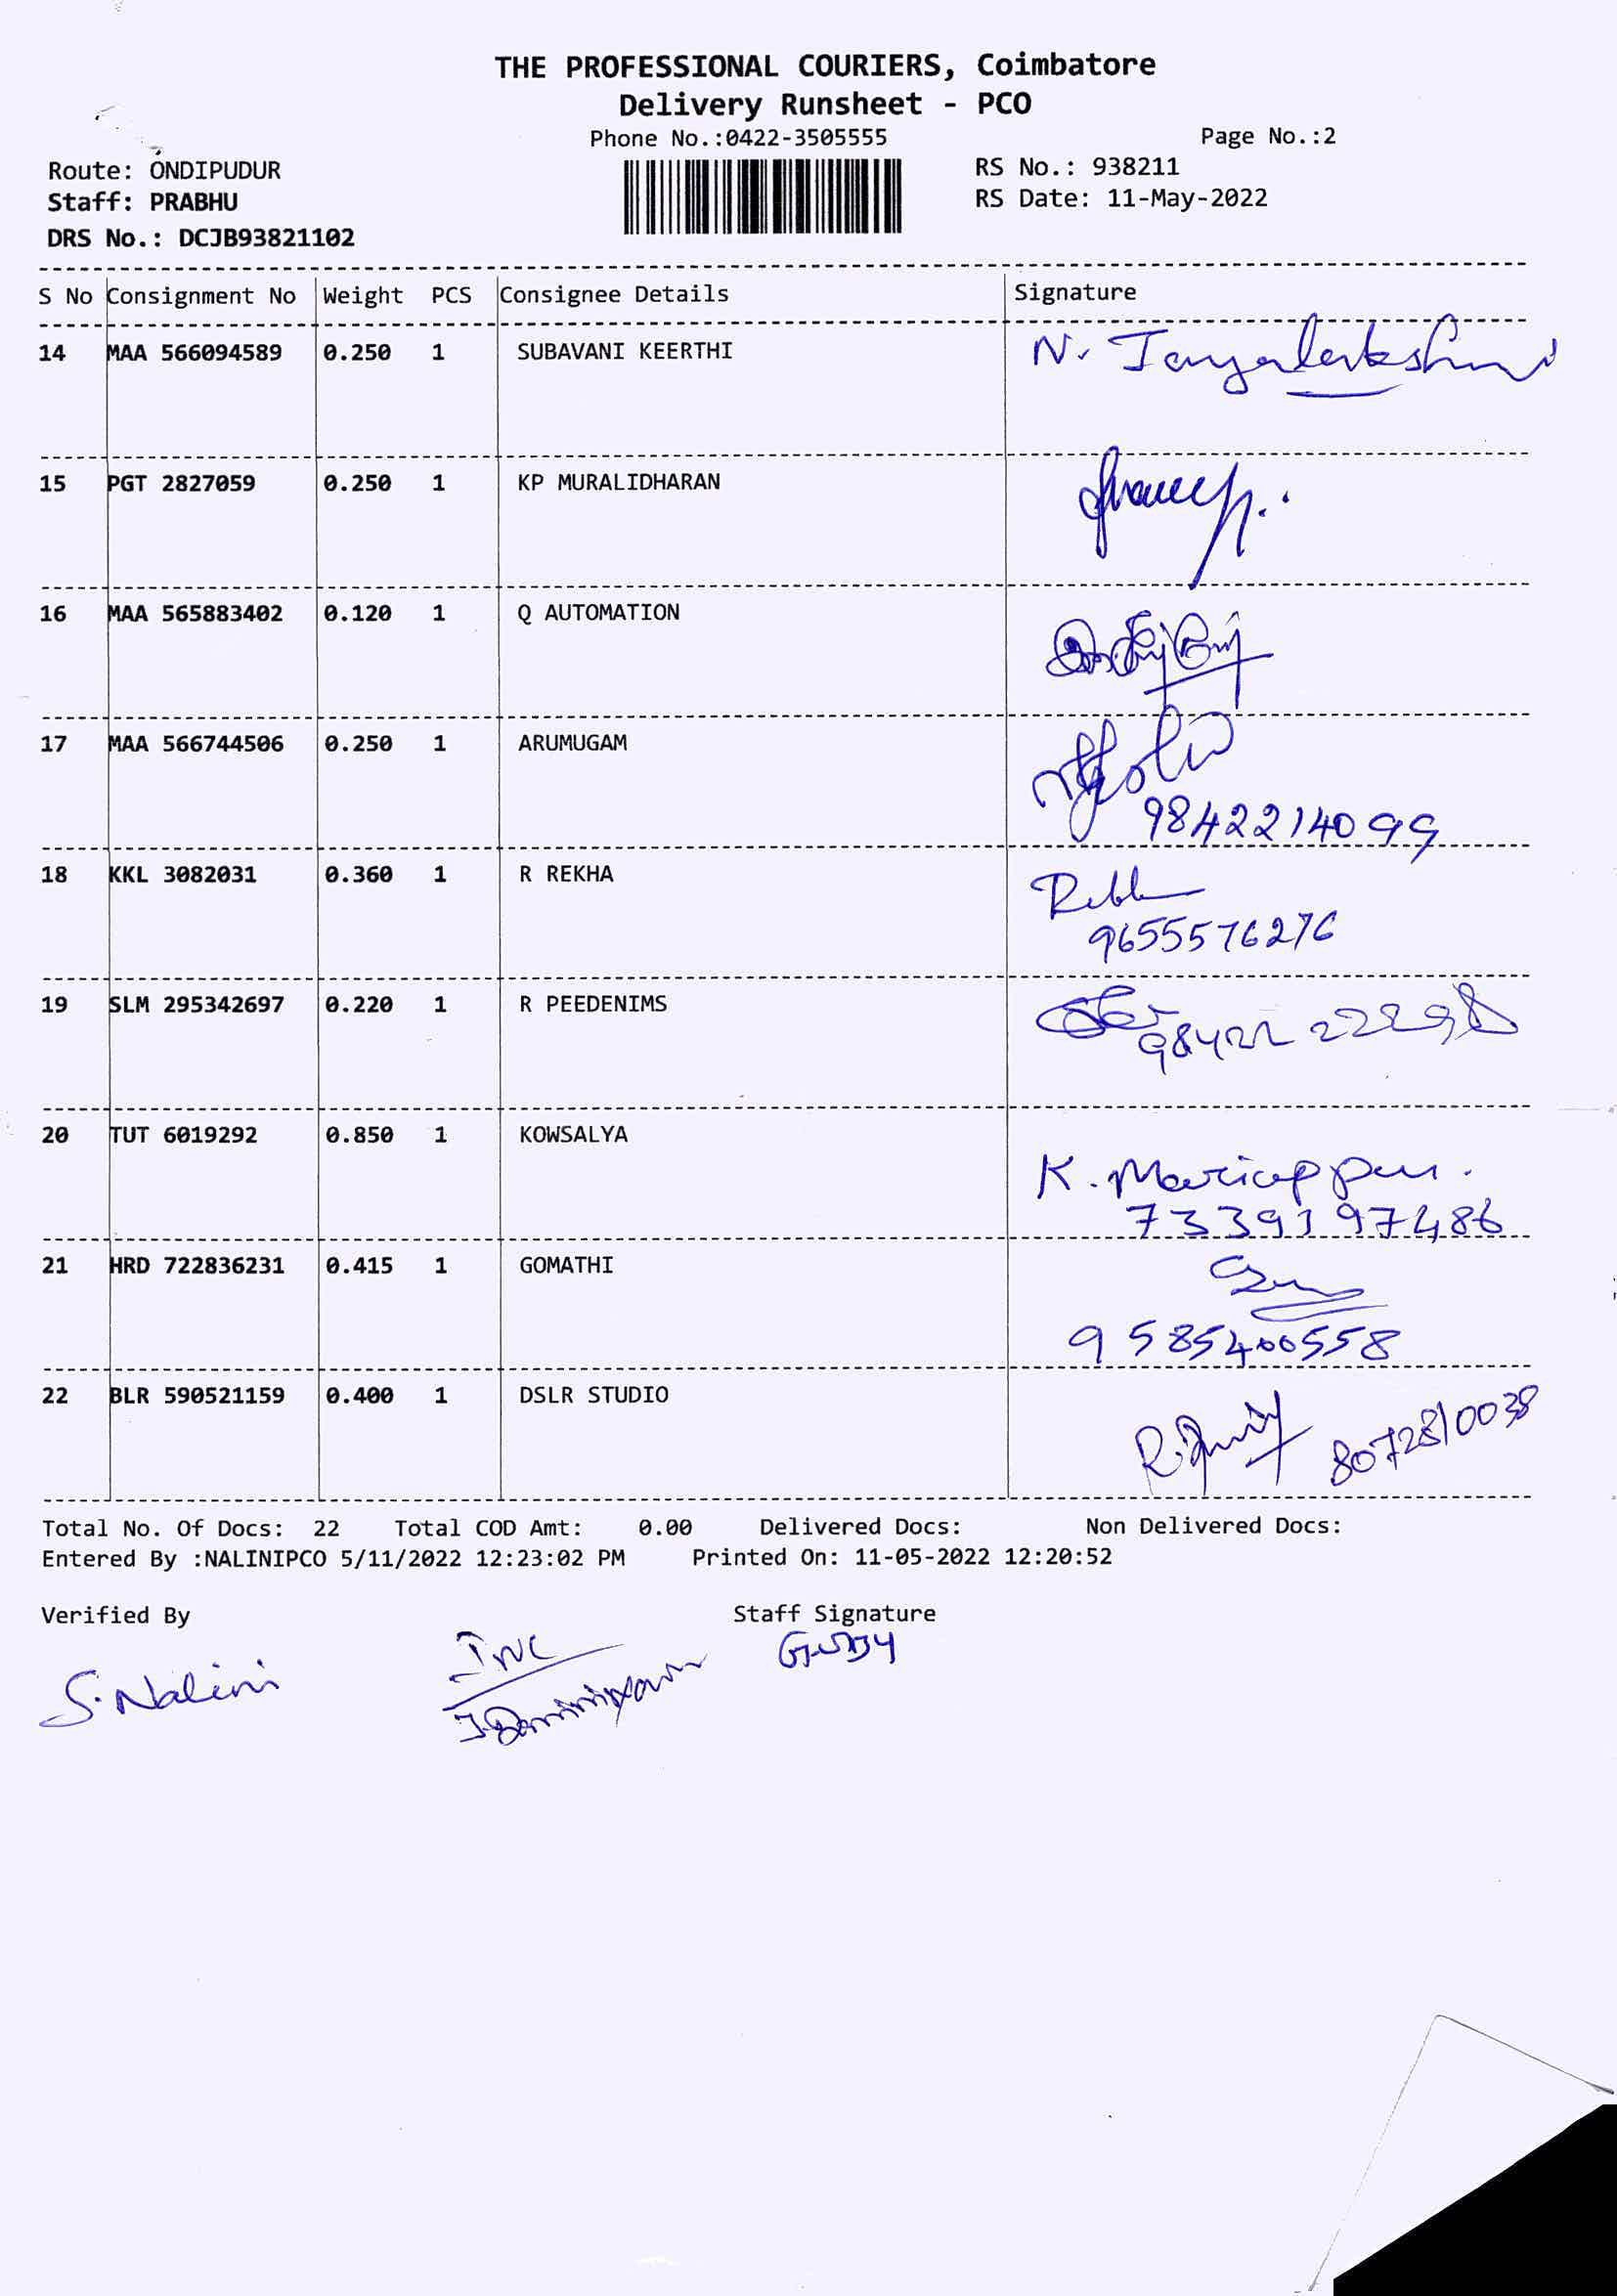 THE PROFESSIONAL COURIERS, Coimbatore
Delivery Runsheet - PCO
Phone No.:0422-3505555 Page No.:2
Route: ONDIPUDUR RS No.: 938211
Staff: PRABHU RS Date: 11-May-2022
DRS No.: DCJB93821102
S No Consignment No Weight PCS Consignee Details Signature
14 MAA 566094589 0.250 1 SUBAVANI KEERTHI N.
15 PGT 2827059 0.250 1 KP MURALIDHARAN
16 MAA 565883402 0.120 1 Q AUTOMATION
17 MAA 566744506 0.250 1 ARUMUGAM
9842214099
18 KKL 3082031 0.360 1 R REKHA
9655576276
19 SLM 295342697 0.220 1 R PEEDENIMS
20 TUT 6019292 0.850 1 KOWSALYA
K. Mariappan.
7339197486
21 HRD 722836231 0.415 1 GOMATHI
9585400558
22 BLR 590521159 0.400 1 DSLR STUDIO
8072810038
Total No. Of Docs: 22 Total COD Amt: 0.00 Delivered Docs: Non Delivered Docs:
Entered By :NALINIPCO 5/11/2022 12:23:02 PM Printed On: 11-05-2022 12:20:52
Verified By Staff Signature
S.Nalini